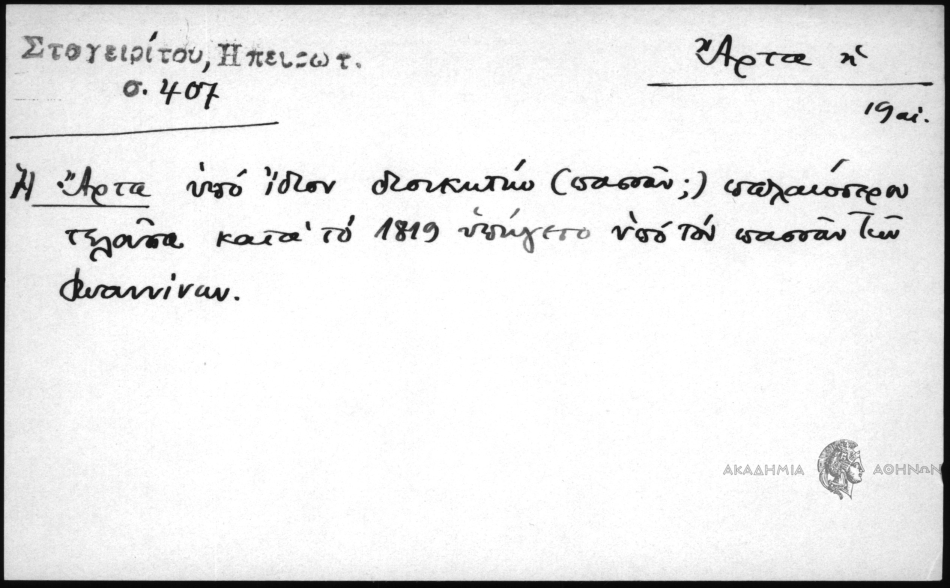 Σταγειρίτου, Ηπειρωτ.
σ. 407
Ἄρτα ἡ
19 αἰ.
Ἡ Ἄρτα ὑπό ἴδιον διοικητήν (πασσᾶν;) παλαιότερον
τελοῦσα κατά τό 1819 ὑπήγετο ὑπό τόν πασσᾶν τῶν
Ἰωαννίνων.
ΑΚΑΔΗΜΙΑ ΑΘΗΝΩΝ